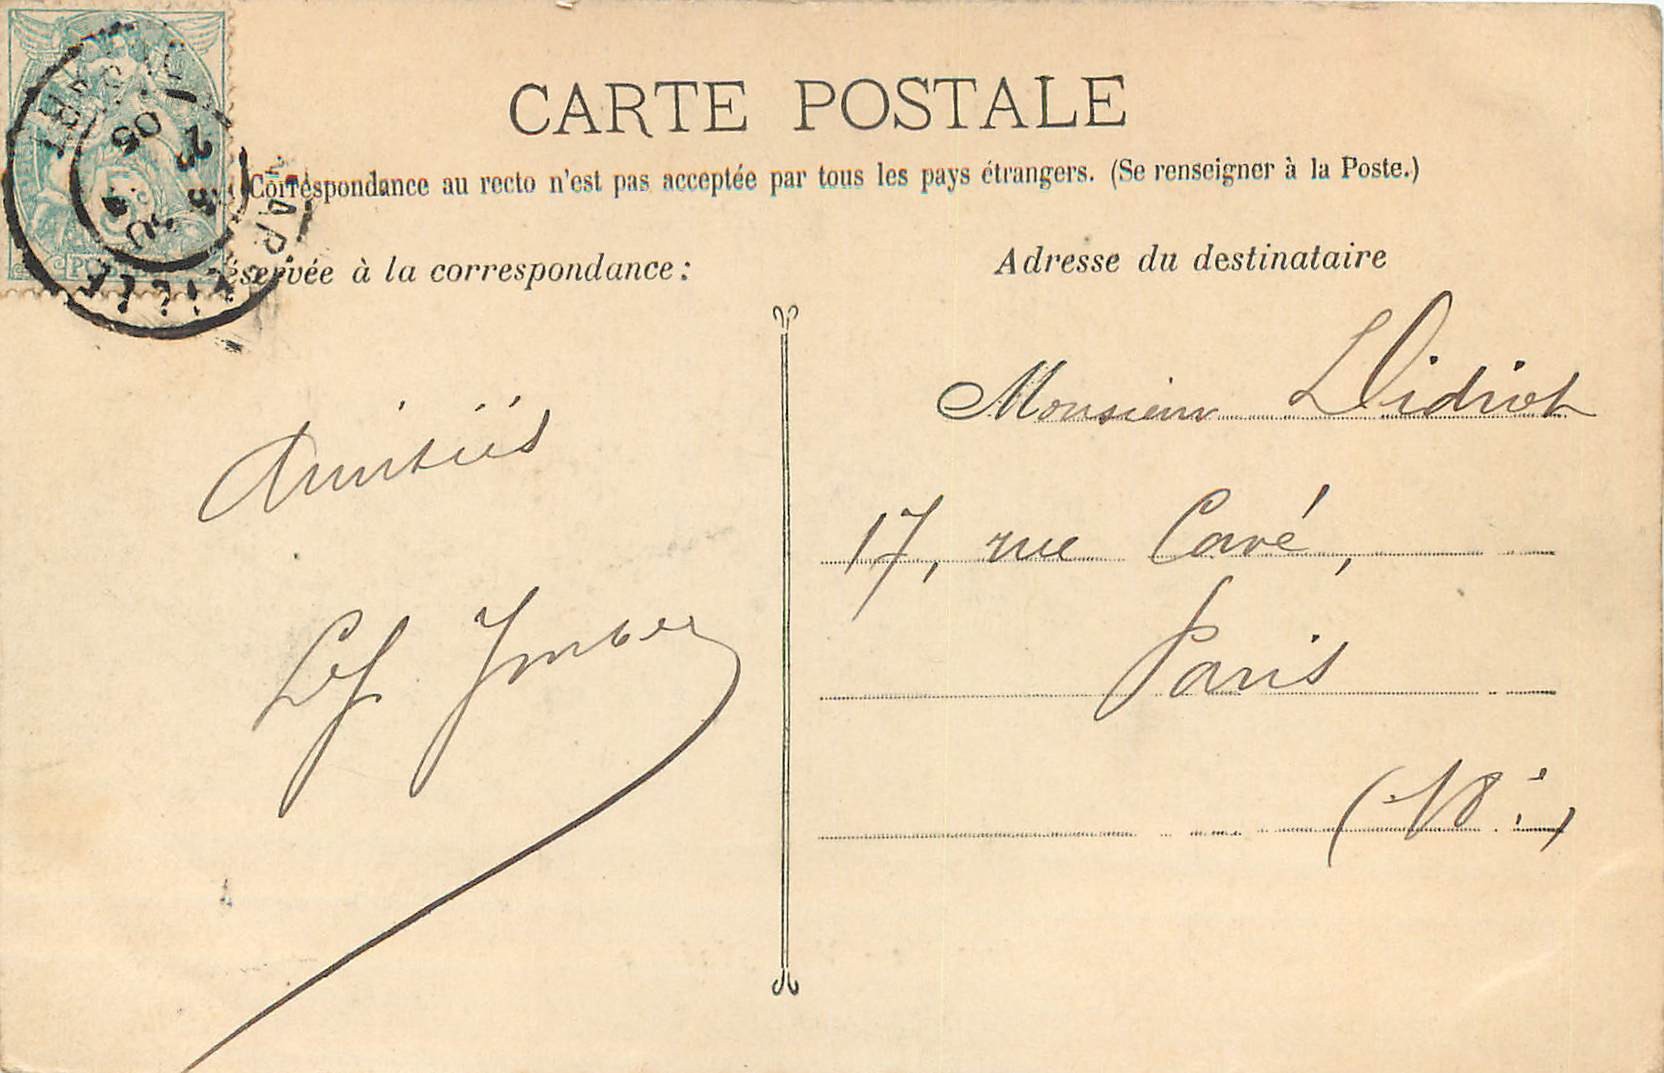 CARTE POSTALE
Correspondance au recto n'est pas acceptée par tous les pays étrangers. (Se renseigner à la Poste.)
éservée à la correspondance:
Adresse du destinataire
Amitiés
Monsieur L Didriot
17, rue Cavé,
Paris
(18e)
05